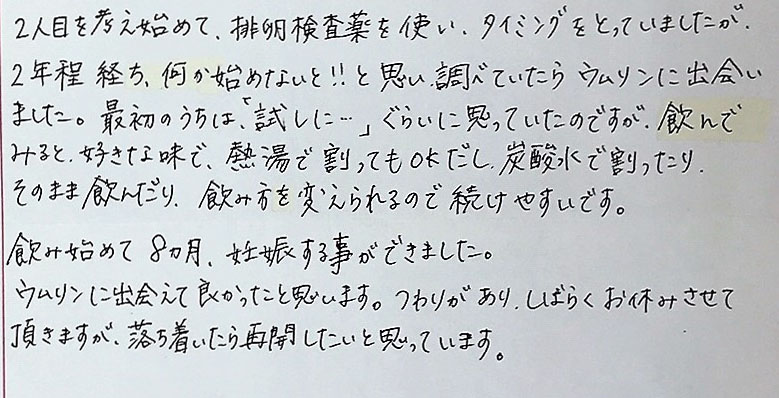 2人目を考え始めて、排卵検査薬を使い、タイミングをとっていましたが、
2年程経ち、何か始めないと!!と思い調べていたらウムリンに出会い
ました。最初のうちは、「試しに…」ぐらいに思っていたのですが、飲んで
みると、好きな味で、熱湯で割ってもOKだし、炭酸水で割ったり、
そのまま飲んだり、飲み方を変えられるので続けやすいです。
飲み始めて8ヵ月、妊娠する事ができました。
ウムリンに出会えて良かったと思います。つわりがあり、しばらくお休みさせて
頂きますが、落ち着いたら再開したいと思っています。